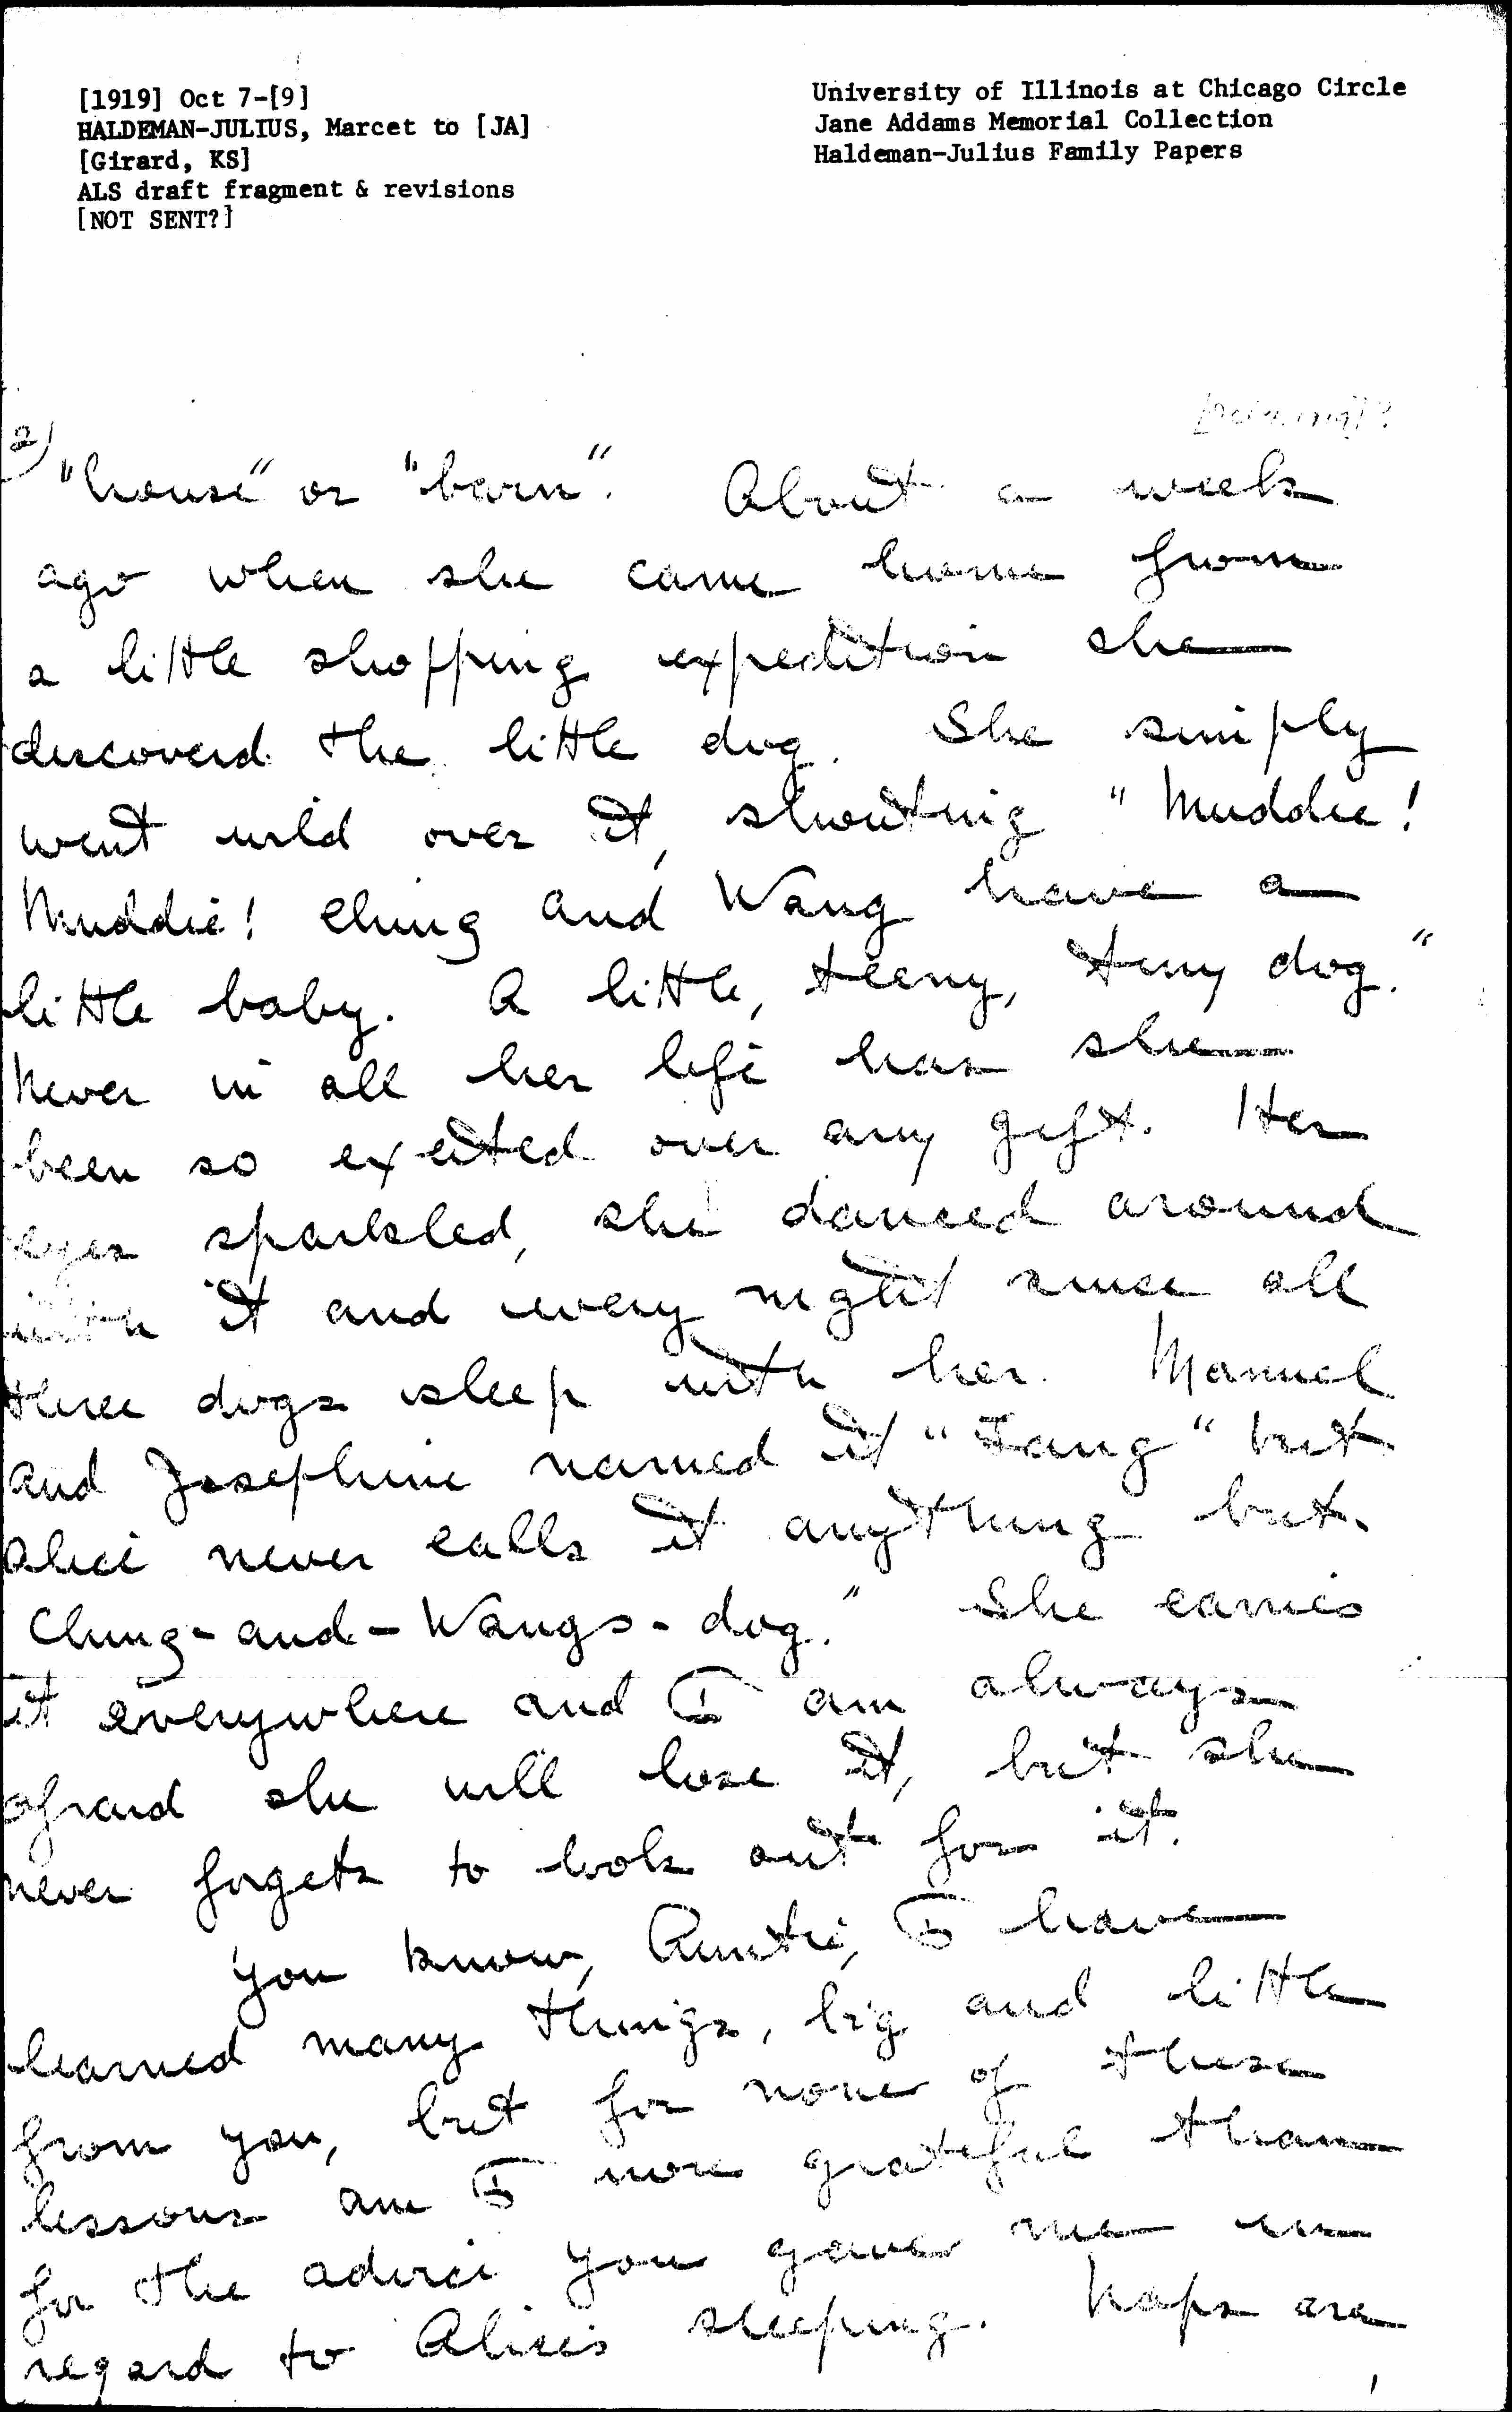 [1919] Oct 7-[9]
HALDEMAN-JULIUS, Marcet to [JA]
[Girard, KS]
ALS draft fragment & revisions
[NOT SENT?]
University of Illinois at Chicago Circle
Jane Addams Memorial Collection
Haldeman-Julius Family Papers
2)
"house" or "barn". About a week
ago when she came home from
a little shopping expedition she
discoverd the little dog. She simply
went wild over it, shouting "Muddie!
Muddie! Ching and Wang have a
little baby. A little, teeny, tiny dog."
Never in all her life has she
been so excited over any gift. Her
eyes sparkled, she danced around
with it and every night since all
three dogs sleep with her. Manuel
and Josephine named it "Fang" but
Alice never calls it anything but
Ching-and-Wangs-dog." She carries
it everywhere and I am always
afraid she will lose it, but she
never forgets to look out for it.
You know, Auntie, I have
learned many things, big and little
from you, but for none of these
lessons am I more grateful than
for the advice you gave me in
regard to Alice's sleeping. Naps are